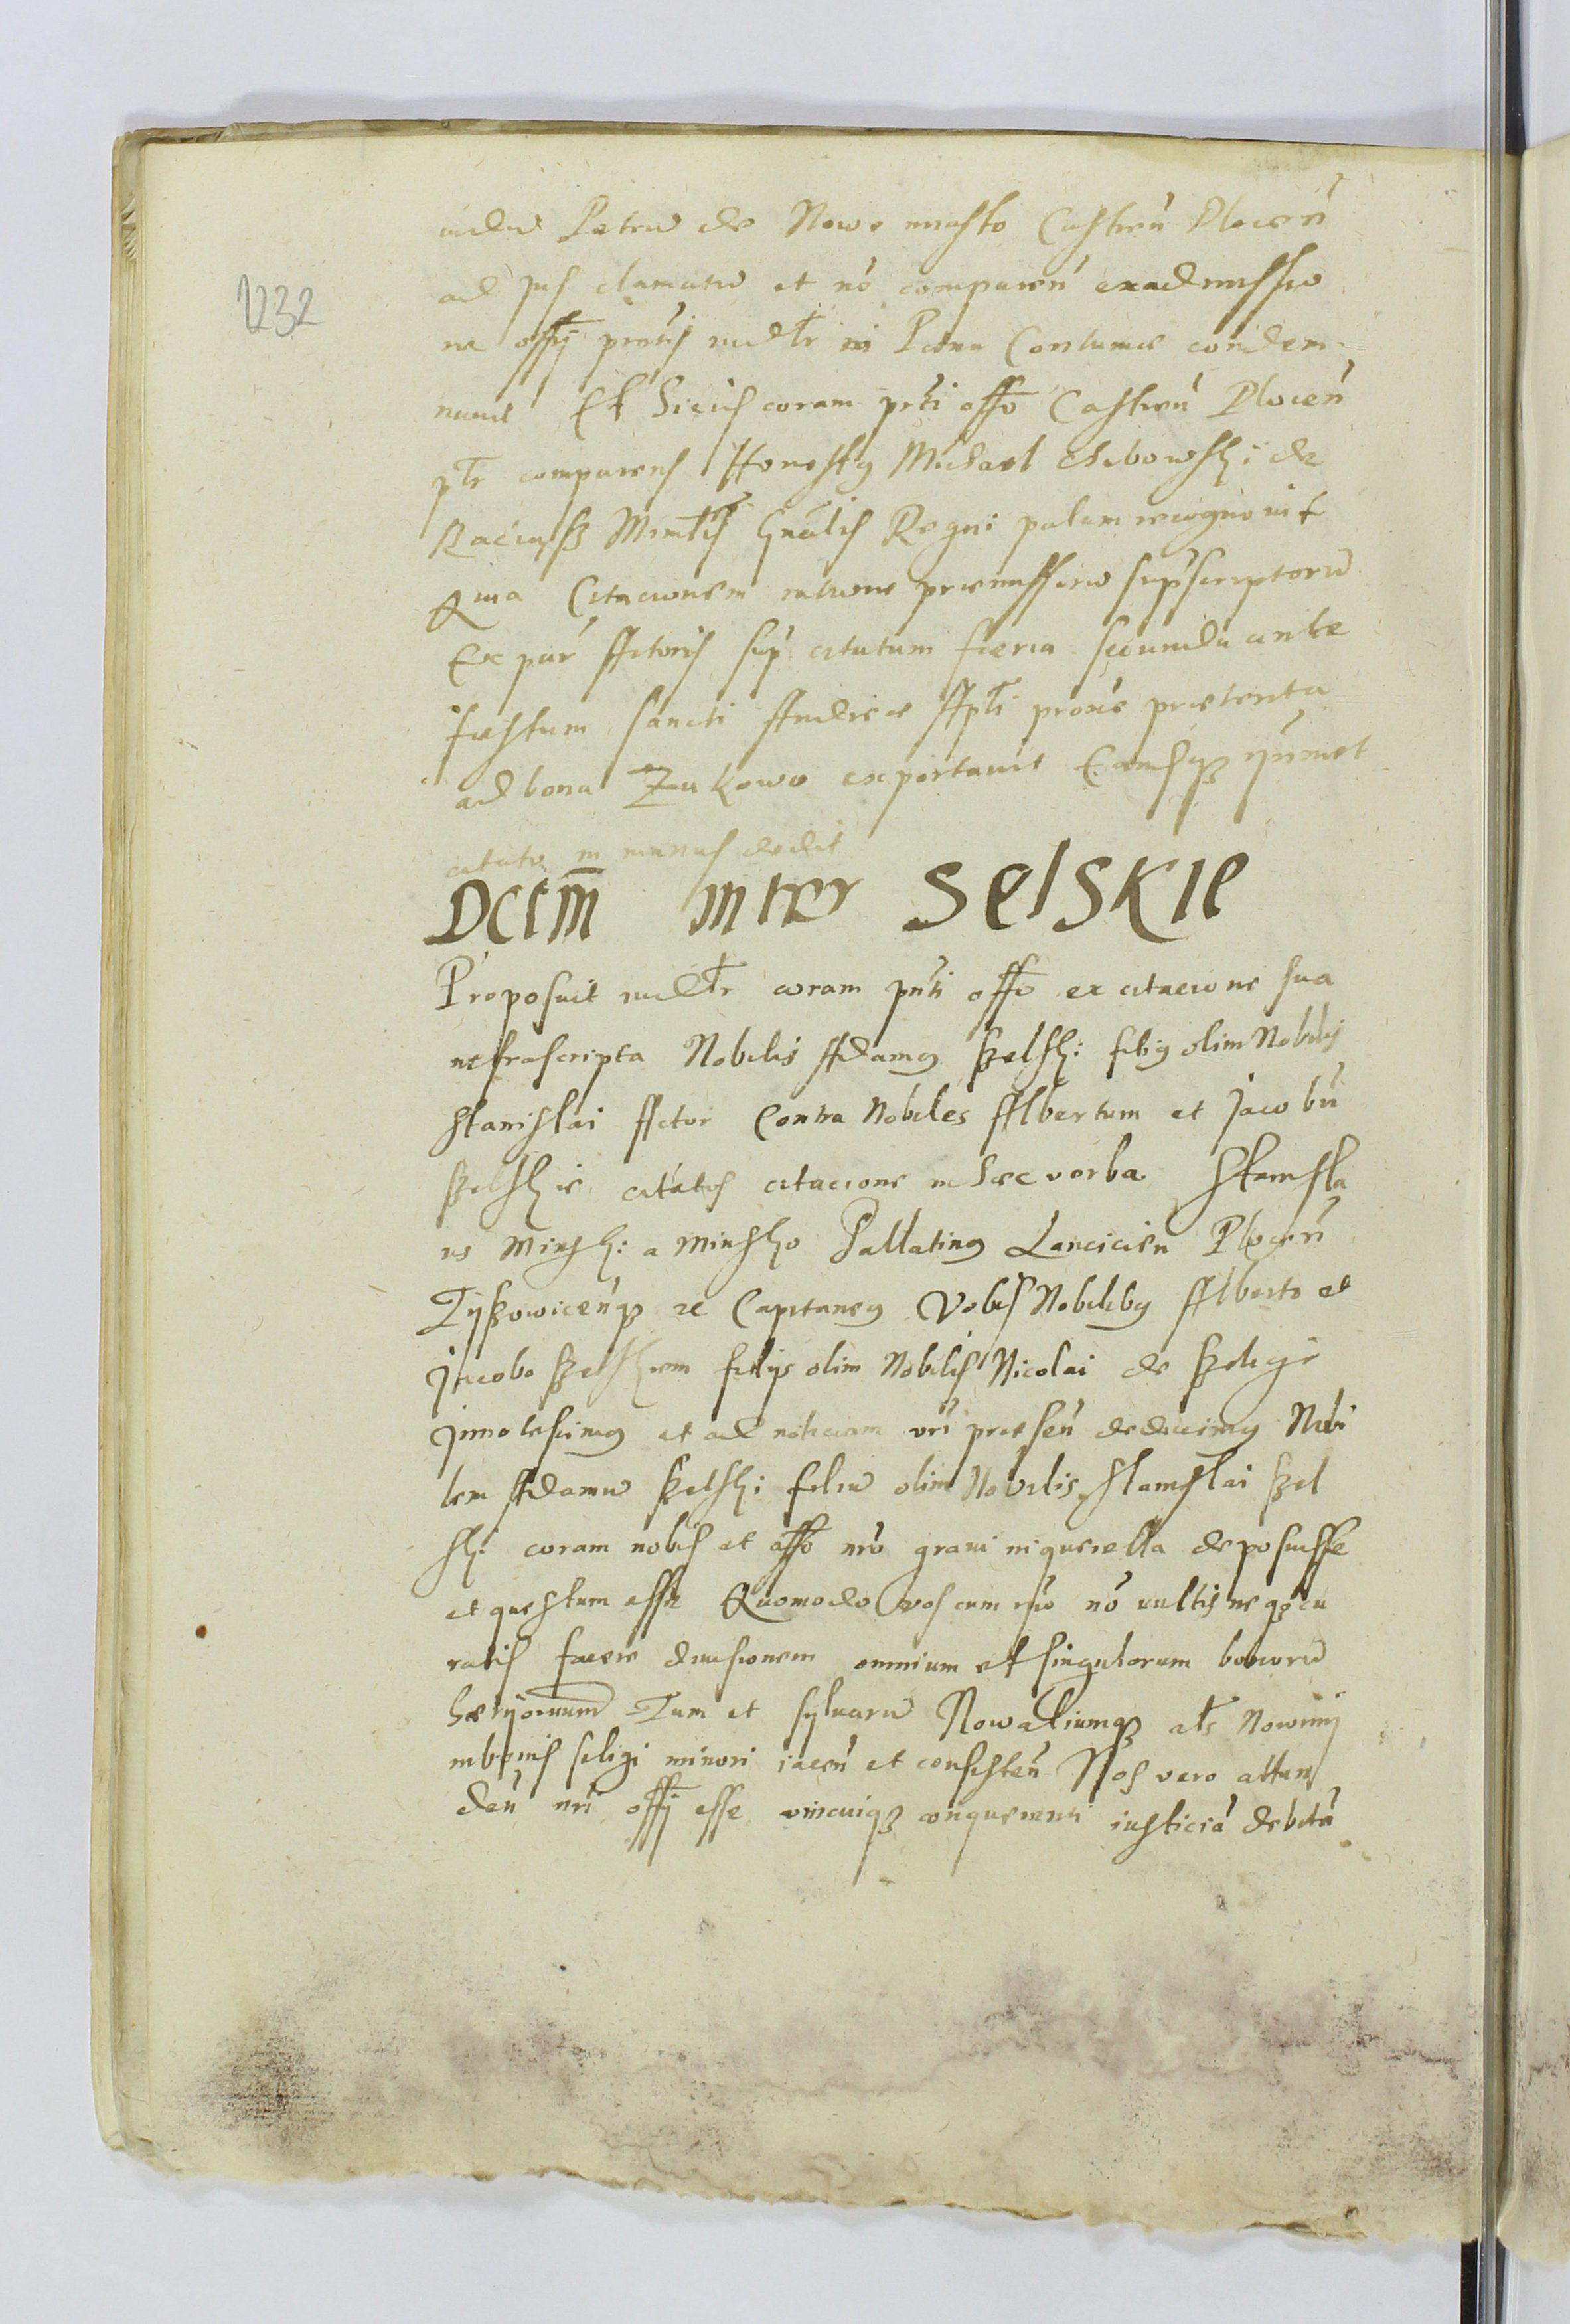 1232
Petrū de Nowe miasto Castreń Ploceń
ad jus clamatū et nō compareń ex admissio
ne offij pratis iudlr in Poena Contumac condem
nauit Et hicius coram prti offo Castreń Ploceń
plr comparens Honestꝰ Michael de
Raciasz Mimtis Gnālis Regni palam recognouit
Quia Citacionem racione praemissorū supscriptorū
Ex par Actoris sup citatum feria secunda ante
festum sancti Andreae Apli proxe praeterita
ad bona Zukowo exportauit Eamqꝫ
citato in manus dedit
Dcrm̄ inter Selskie
Proposuit iudlr coram pnti offo ex citacione sua
infrascripta Nobilis Adamꝰ Szelski filiꝰ olim Nobilis
Stanislai Actor Contra Nobiles Albertum et Jacobū
Szelskie citatos citacione in haec verba Stanisla
us Minski a Minsko Pallatinꝰ Lancicień Ploceń
Tyszowiceńqꝫ ꝛc Capitaneꝰ Vobis Nobilibꝰ Alberto et
Jacobo Szelskiem filijs olim Nobilis Nicolai de Szeligi
Innotescimꝰ et ad noticiam vrī praeseń deducimꝰ Nobi
lem Adamū Szelski filiū olim Nobilis Stanislai Szel
ski coram nobis et offo nrō graui in querella deposuisse
et questum esse Quomodo vos cum eo nō vultis neqꝫ cu
ratis facere diuisionem omnium et singulorum bonorū
haerijorum Tum et syluarū Nowaliumqꝫ als Nowiny
in bonis seligi minori iaceń et consisteń Nos vero atten
deń nrī offij esse vnicuiqꝫ conquerenti iusticiā debitā